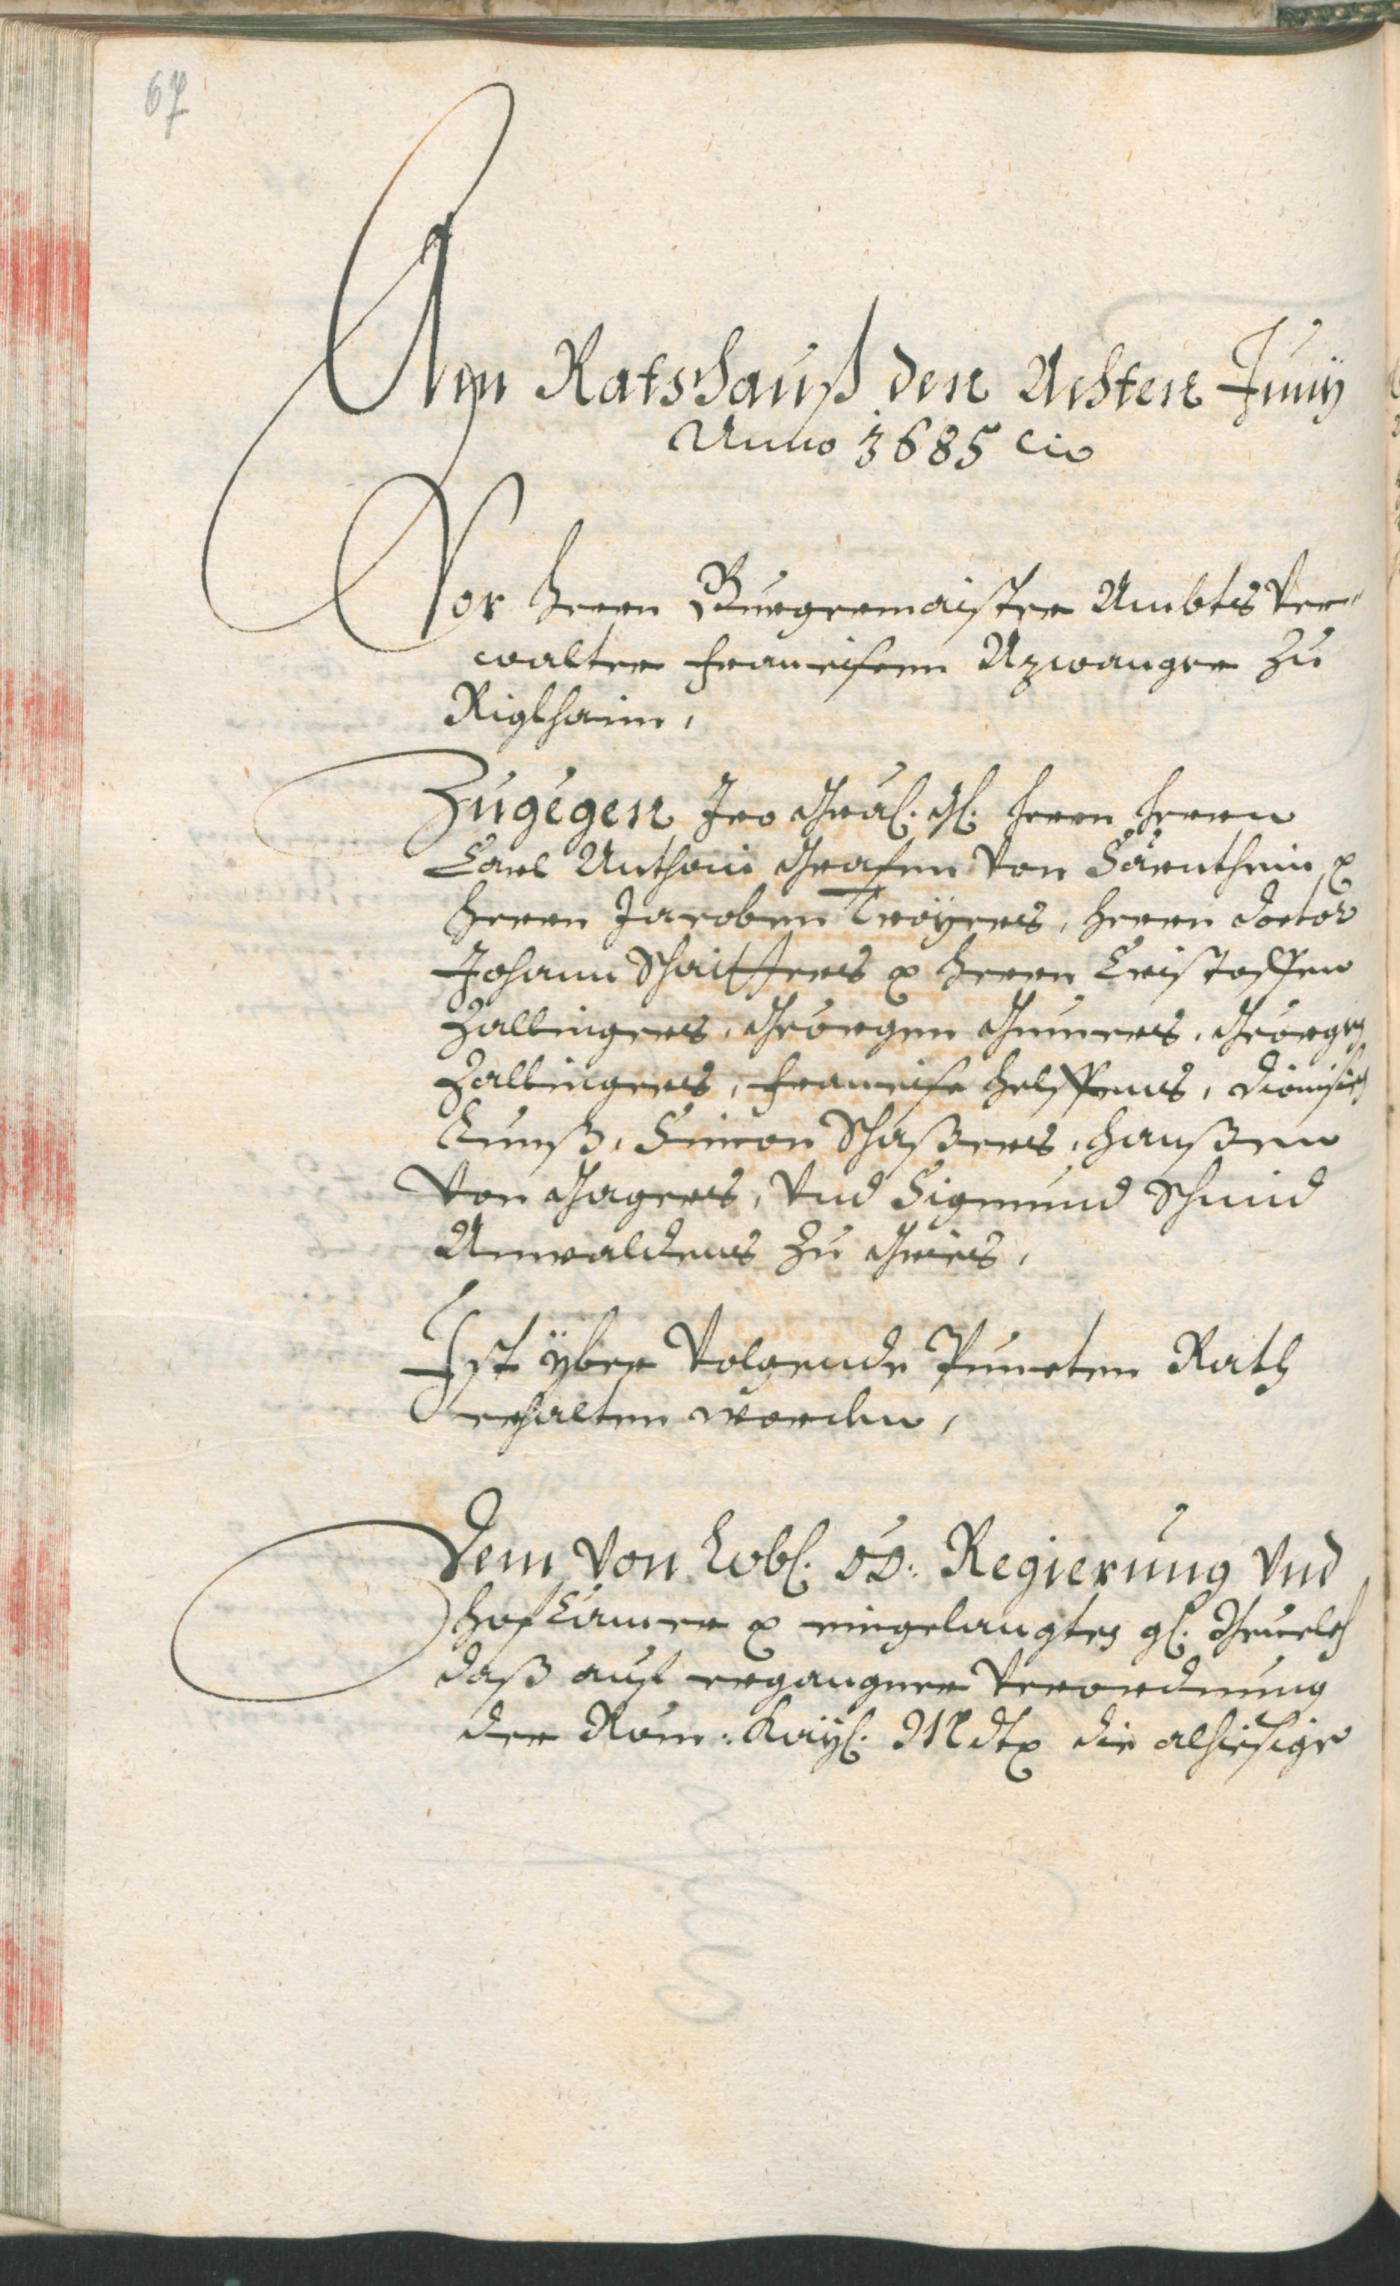 67
Am Ratshauß den Achten Junij
Anno 1685 etc
Vor herrn Burgermaister Ambts Ver-
walter Francisen Azwanger zu
Riglhaim,
Zugegen Iro Gräfl. Gl. herrn herrn
Carl Anthoni Grafen Von Särnthein etc
herrn Jacoben Troÿers, herrn Doctor
Johann Schaitters etc herrn Cristoffen
Zallingers, Geörgen Gumers, Geörgen
Zallingers, Francisc Helffens, Dionisien
Simon Schaßers, Hanßen
Von Gagers, Vnd Sigmund Schmid
Anwaldens zu Gries,
Ist yber Volgende Puncten Rath
gehalten worden,
Dem Von Lobl. OÖ. Regierung Vnd
HofCamer etc eingelangten gl.
daß auf ergangner Verordnung
der Röm: Kaÿl. Mdt etc die alhiesige